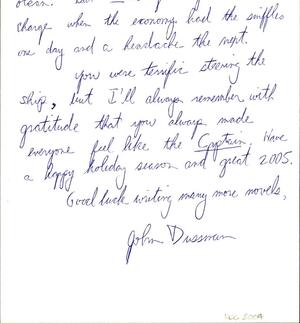 charge when the economy had the sniffles
one day and a headache the next.
you were terrific steering the
ship, but I'll always remember with
gratitude that you always made
everyone feel like the Captain. Have
a happy holiday season and great 2005.
Good luck writing many more novels,
John Dussman
DEC 2004